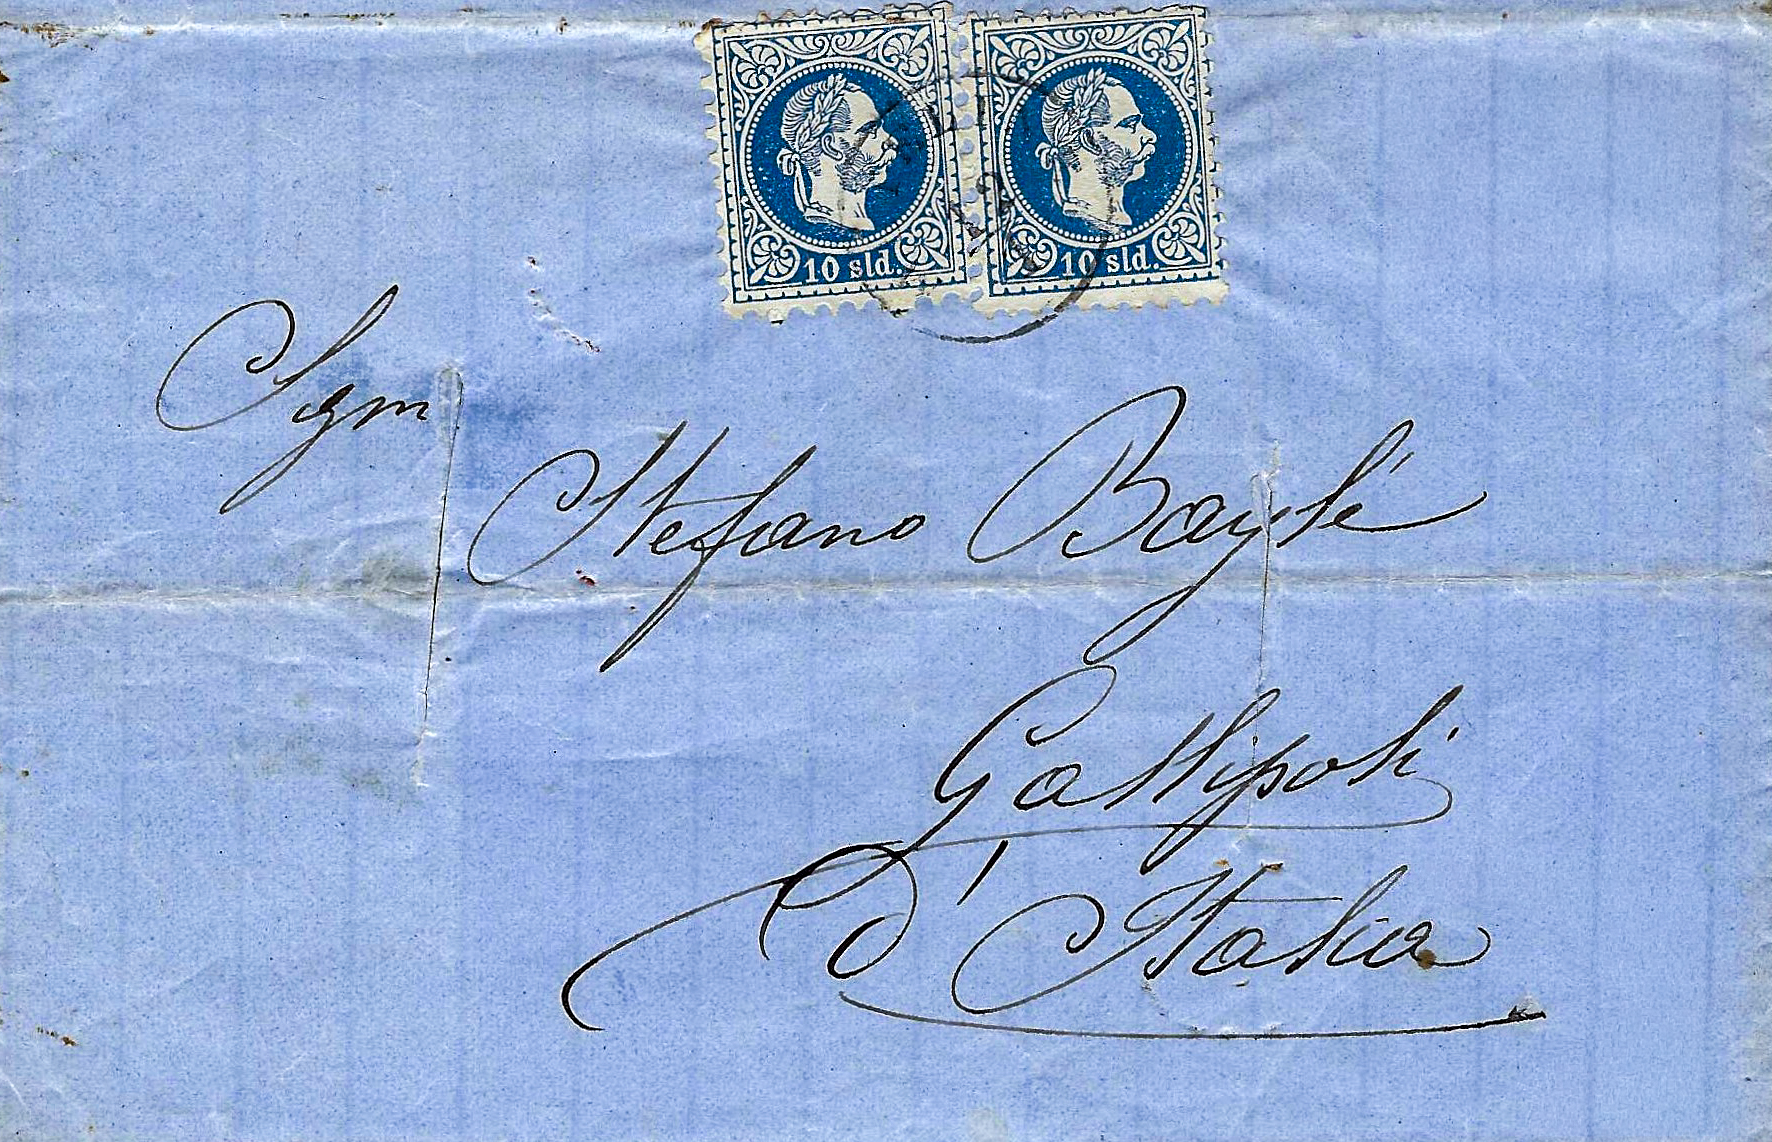 10 sld. 10 sld.
Sigr
Stefano Baylé
Gallipoli
D'Italia